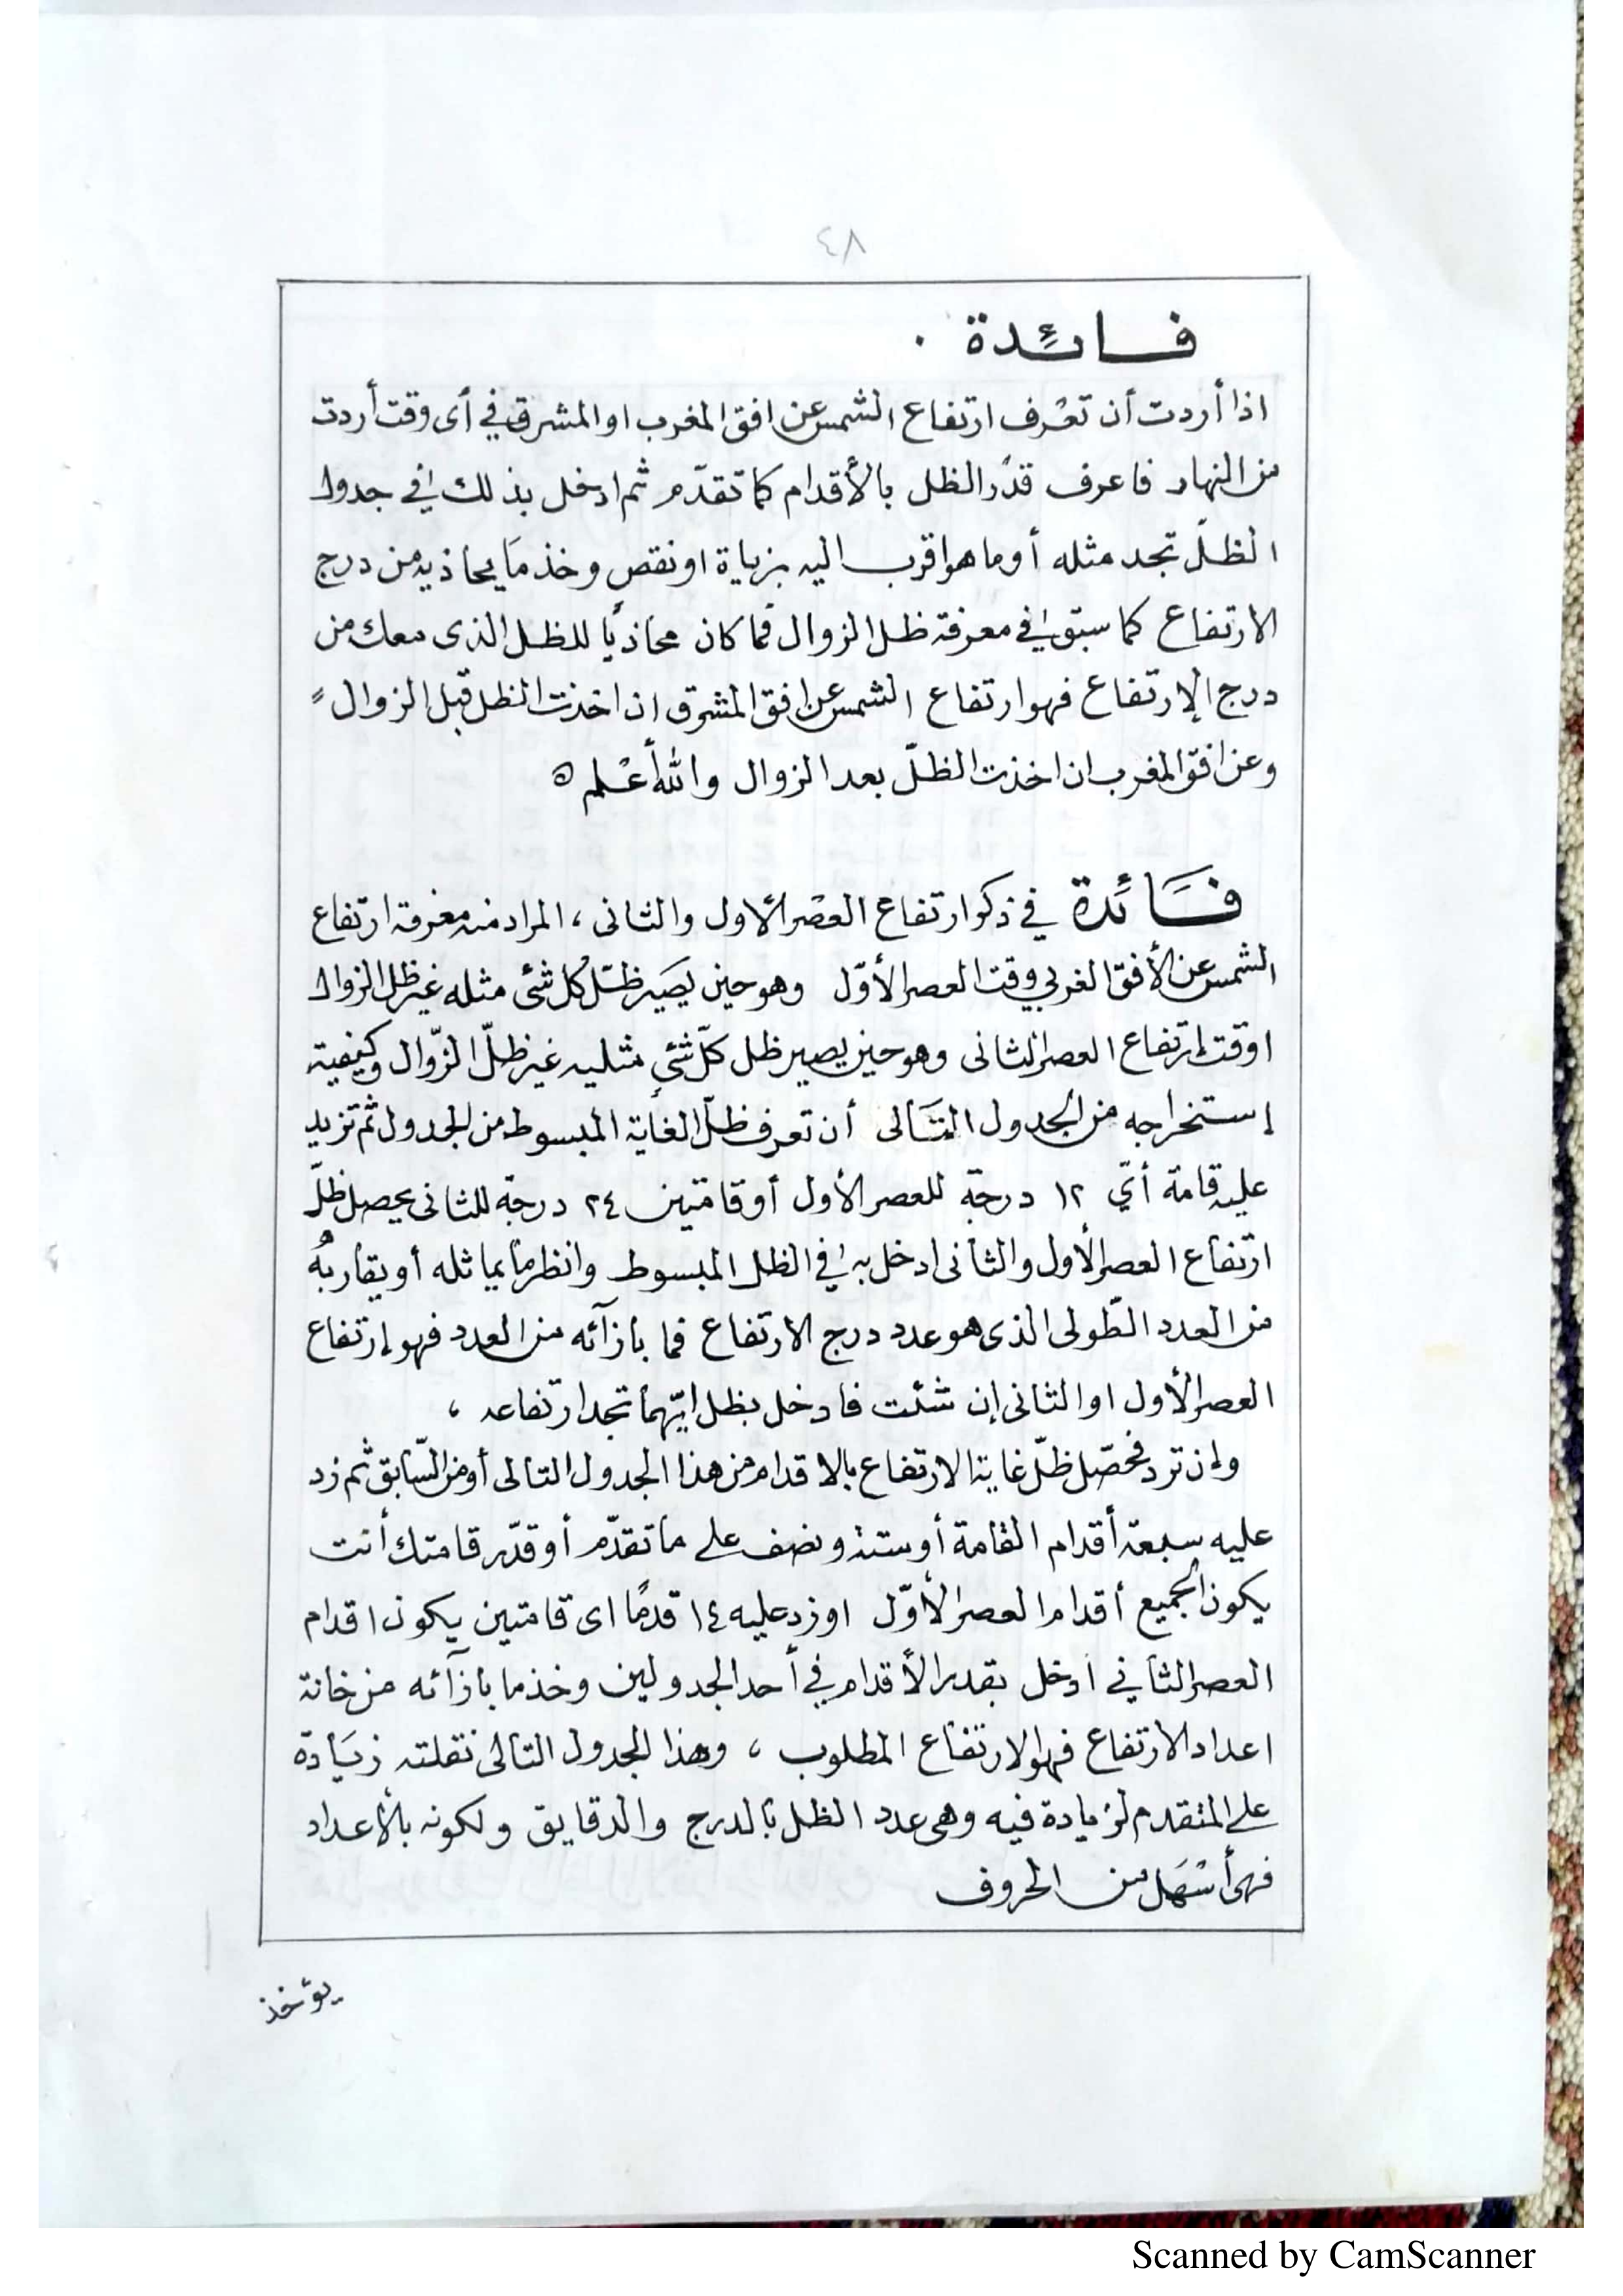 ٤٨
فائدة .
اذا أردت أن تعْرف ارتفاع الشمس عن افق المغرب او المشرق في أى وقت أردت
من النهار فاعرف قدْر الظل بالأقدام كما تقدّم ثم ادخل بذلك في جدول
الظلّ تجد مثله أو ما هو اقرب اليه بزياة او نقص وخذ مَا يحاذيه من درج
الارتفاع كما سبق في معرفة ظل الزوال فما كان محاذيًا للظل الذى معك من
درج الإرتفاع فهو ارتفاع الشمس عن افق المشرق ان اخذت الظل قبل الزوال
وعن افق المغرب ان اخذت الظلّ بعد الزوال والله أعْلم ه
فَائدة في ذكر ارتفاع العصْر الأول والثانى ، المراد منه معرفة ارتفاع
الشمس عن الأفق الغربي وقت العصر الأوّل وهو حين يصَير ظلّ كُل شئ مثله غير ظل الزوال
او وقت إرتفاع العصر الثانى وهو حين يصير ظل كلّ شئ مثليه غير ظلّ الزّوال وكيفية
إستخراجه من الجدول التَالى أن تعرف ظلّ الغاية المبسوط من الجدول ثم تزيد
عليه قامة أيّ ١٢ درجة للعصر الأول أو قامتين ٢٤ درجة للثانى يحصل ظلّ
ارتفاع العصر الأول والثانى ادخل به في الظل المبسوط وانظر ما يماثله أو يقاربهُ
من العدد الطّولى الذى هو عدد درج الارتفاع فما بازآئه من العدد فهو إرتفاع
العصر الأول او الثانى إن شئت فادخل بظل ايّهما تجد ارتفاعه ،
وإن ترد فحصّل ظلّ غاية الارتفاع بالاقدام من هذا الجدول التالى أو من السّابق ثم زد
عليه سبعة أقدام القامة أو ستة ونصف على ما تقدّم أو قدّر قامتك أنت
يكون الجميع أقدام العصر الأوّل او زد عليه ١٤ قدمًا اى قامتين يكون اقدام
العصر الثاني ادخل بقدر الأقدام في أحد الجدولين وخذ ما بازآئه من خانة
اعداد الارتفاع فهو الارتفاع المطلوب ، وهذا الجدول التالى نقلته زيَادة
على المتقدم لزيادة فيه وهى عدد الظل بالدرج والدقايق ولكونه بالأعداد
فهى أسْهَل من الحروف
يؤخذ
Scanned by CamScanner